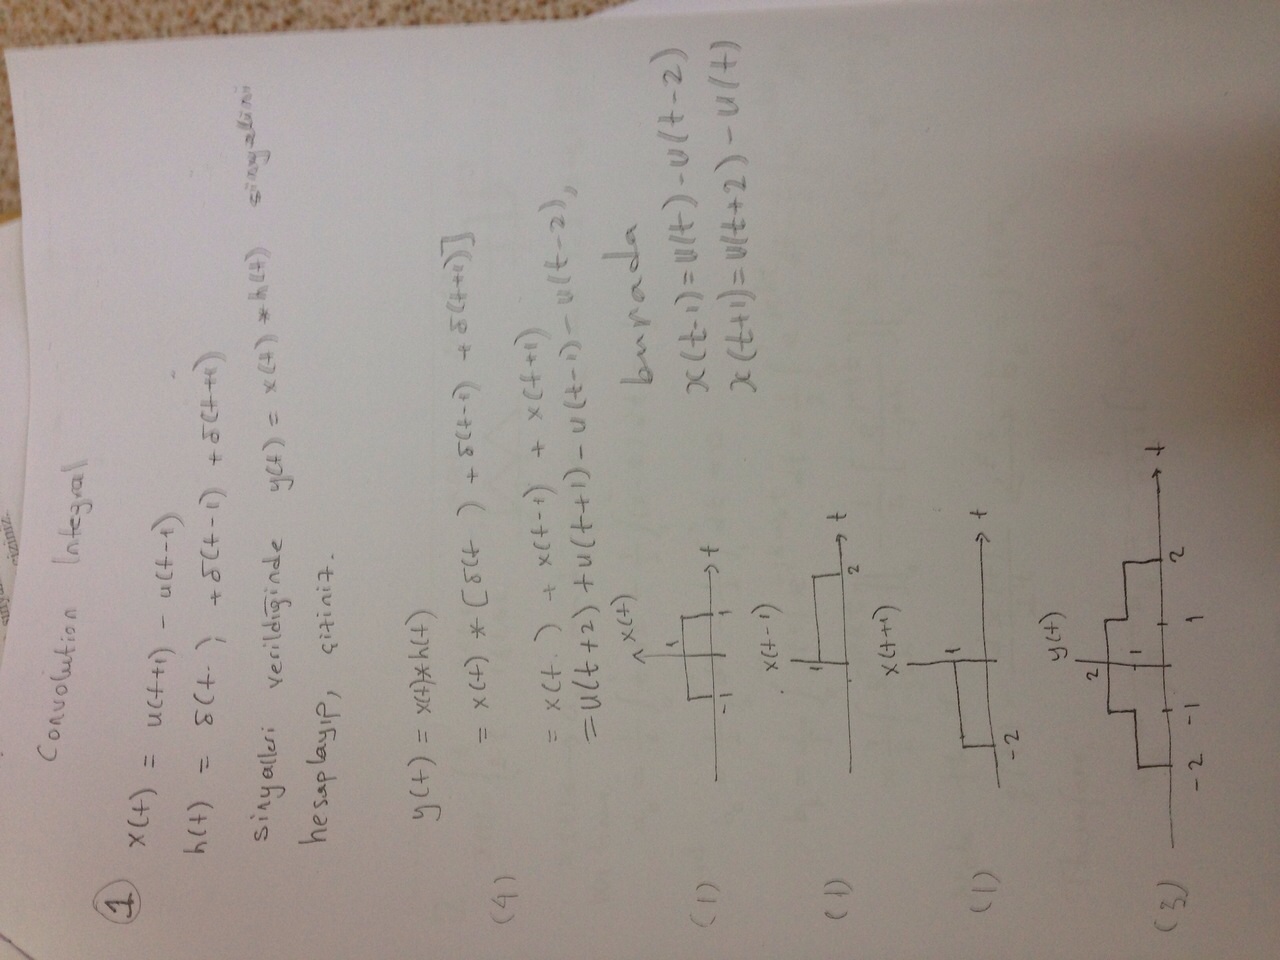 Convolution Integral
1
x(t) = u(t+1) - u(t-1)
h(t) = δ(t ) + δ(t-1) + δ(t+1)
sinyalleri verildiğinde y(t) = x(t) * h(t) sinyalini
hesaplayıp, çiziniz.
y(t) = x(t)*h(t)
(4) = x(t) * [δ(t ) + δ(t-1) + δ(t+1)]
= x(t ) + x(t-1) + x(t+1)
= u(t+2) + u(t+1) - u(t-1) - u(t-2),
burada
x(t-1) = u(t) - u(t-2)
x(t+1) = u(t+2) - u(t)
x(t)
(1) -1 1 1 t
x(t-1)
(1) 1 2 t
x(t+1)
(1) -2 1 t
y(t)
2
1
(3) -2 -1 1 2 t